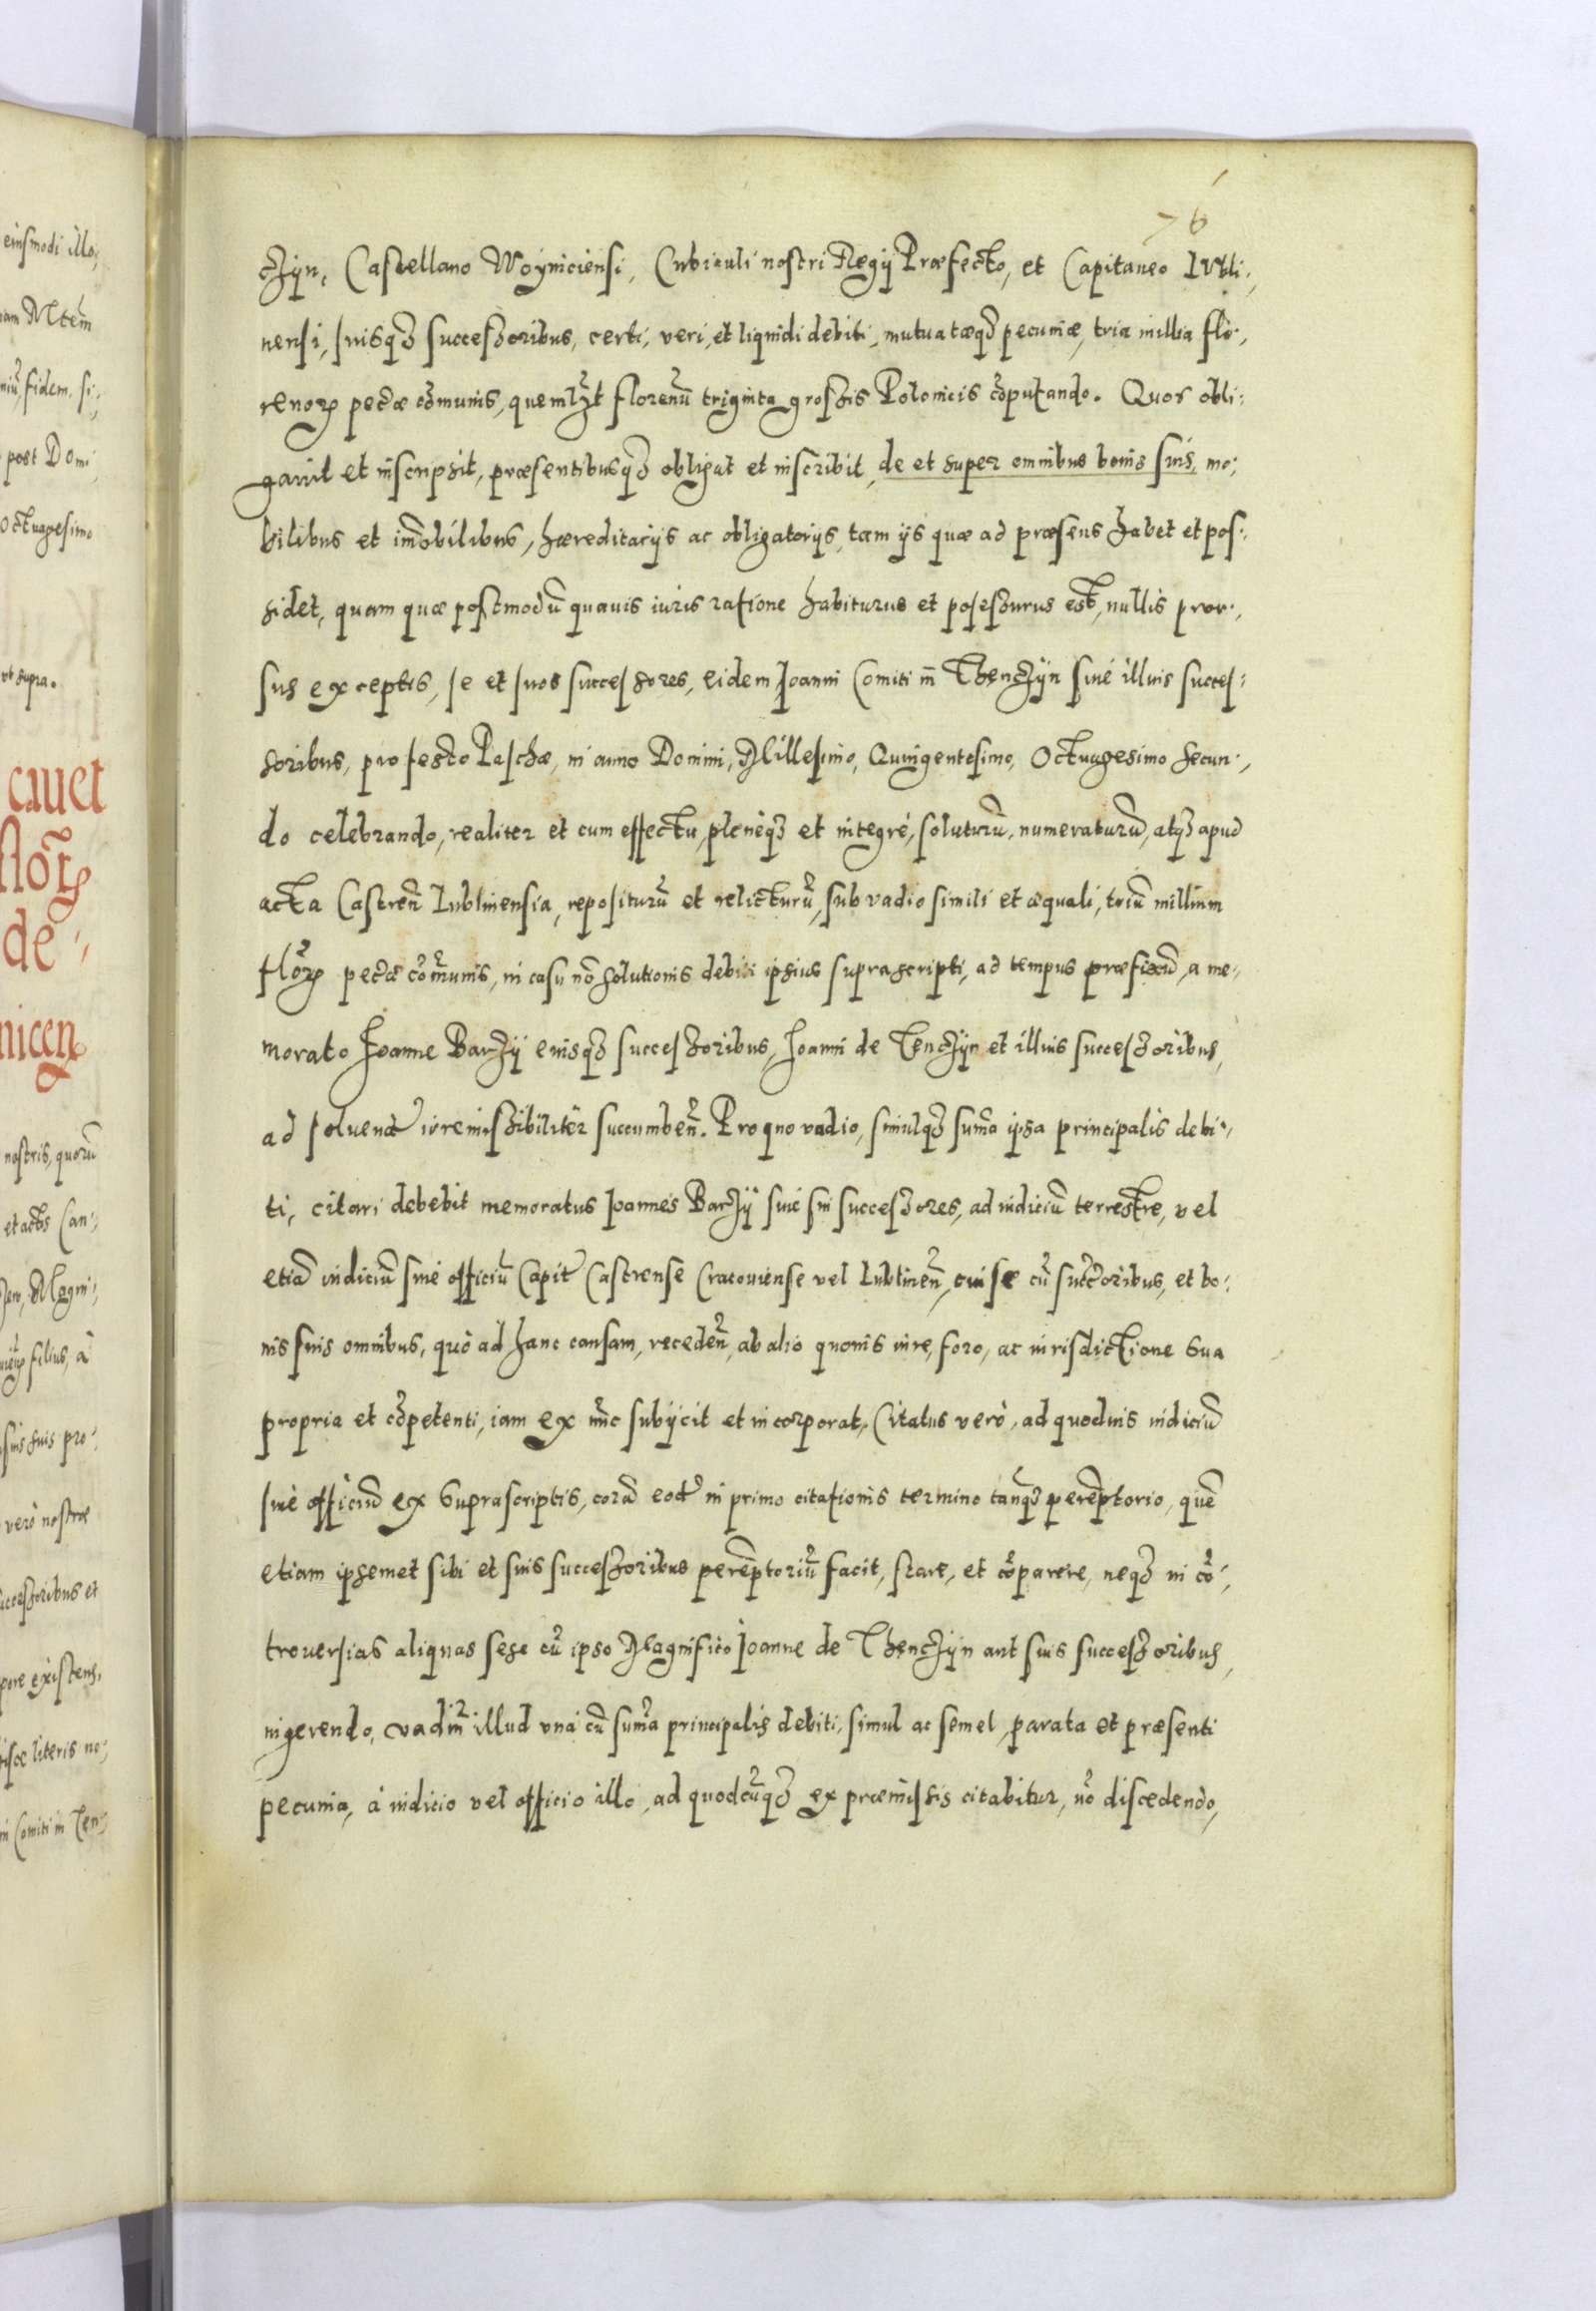 76
czÿn, Castellano Woyniciensi, Cubiculi nostri Regij Præfecto, et Capitaneo Lubli-
nensi, suisq3 successoribus, certi, veri, et liquidi debiti, mutuatæq3 pecuniæ, tria millia flo-
renorꝝ pecūæ cōmunis, quemlꝫt florenū triginta grossis Polonicis cōputando. Quos obli-
gavit et inscripsit, præsentibusq3 obligat et inscribit, de et super omnibus bonis suis, mo-
bilibus et im̄obilibus, hæreditarijs ac obligatorijs, tam ijs quæ ad præsens habet et pos-
sidet, quam quæ postmodū quavis iuris ratione habiturus et possessurus est, nullis pror-
sus exceptis, se et suos successores, eidem Joanni Comiti in Thenczÿn siue illius succes-
soribus, pro festo Paschæ, in anno Domini, Millesimo, Quingentesimo, Octuagesimo secun-
do celebrando, realiter et cum effectu, pleneq3 et integré, soluturū, numeraturū, atq3 apud
acta Castren̄ Lublinensia, repositurū et relicturū, sub vadio simili et æquali, triū millium
florꝝ pecūæ cōmunis, in casu nō solutionis debiti ipsius suprascripti, ad tempus præfixū, a me-
morato Joanne Barzÿ eiusq3 successoribus, Joanni de Tenczÿn et illius successoribus,
ad soluend̄ irremissibiliter succumben̄. Pro quo vadio, simulq3 sum̄a ipsa principalis debi-
ti, citari debebit memoratus Joannes Barzÿ siue sui successores, ad iudiciū terrestre, vel
etiā iudiciū siue officiū Capit̄ Castrense Cracouiense vel Lublinen̄, cui se cū succ̄oribus, et bo-
nis suis omnibus, quò ad hanc causam, receden̄, ab alio quouis iure, foro, ac iurisdictione sua
propria et cōpetenti, iam ex nūc subijcit et incorporat, Citatus verò, ad quoduis iudiciū
siue officiū ex suprascriptis, corā eod̄ in primo citationis termino tanq̄3 perēptorio, quē
etiam ipsemet sibi et suis successoribus perēptoriū facit, stare, et cōparere, neq3 in cō-
trouersias aliquas sese cū ipso Magnifico Joanne de Thenczÿn aut suis successoribus,
ingerendo, vadiū illud vnà cū sum̄a principalis debiti, simul ac semel, parata et præsenti
pecunia, à iudicio vel officio illo, ad quodcūq3 ex præmissis citabitur, nō discedendo,